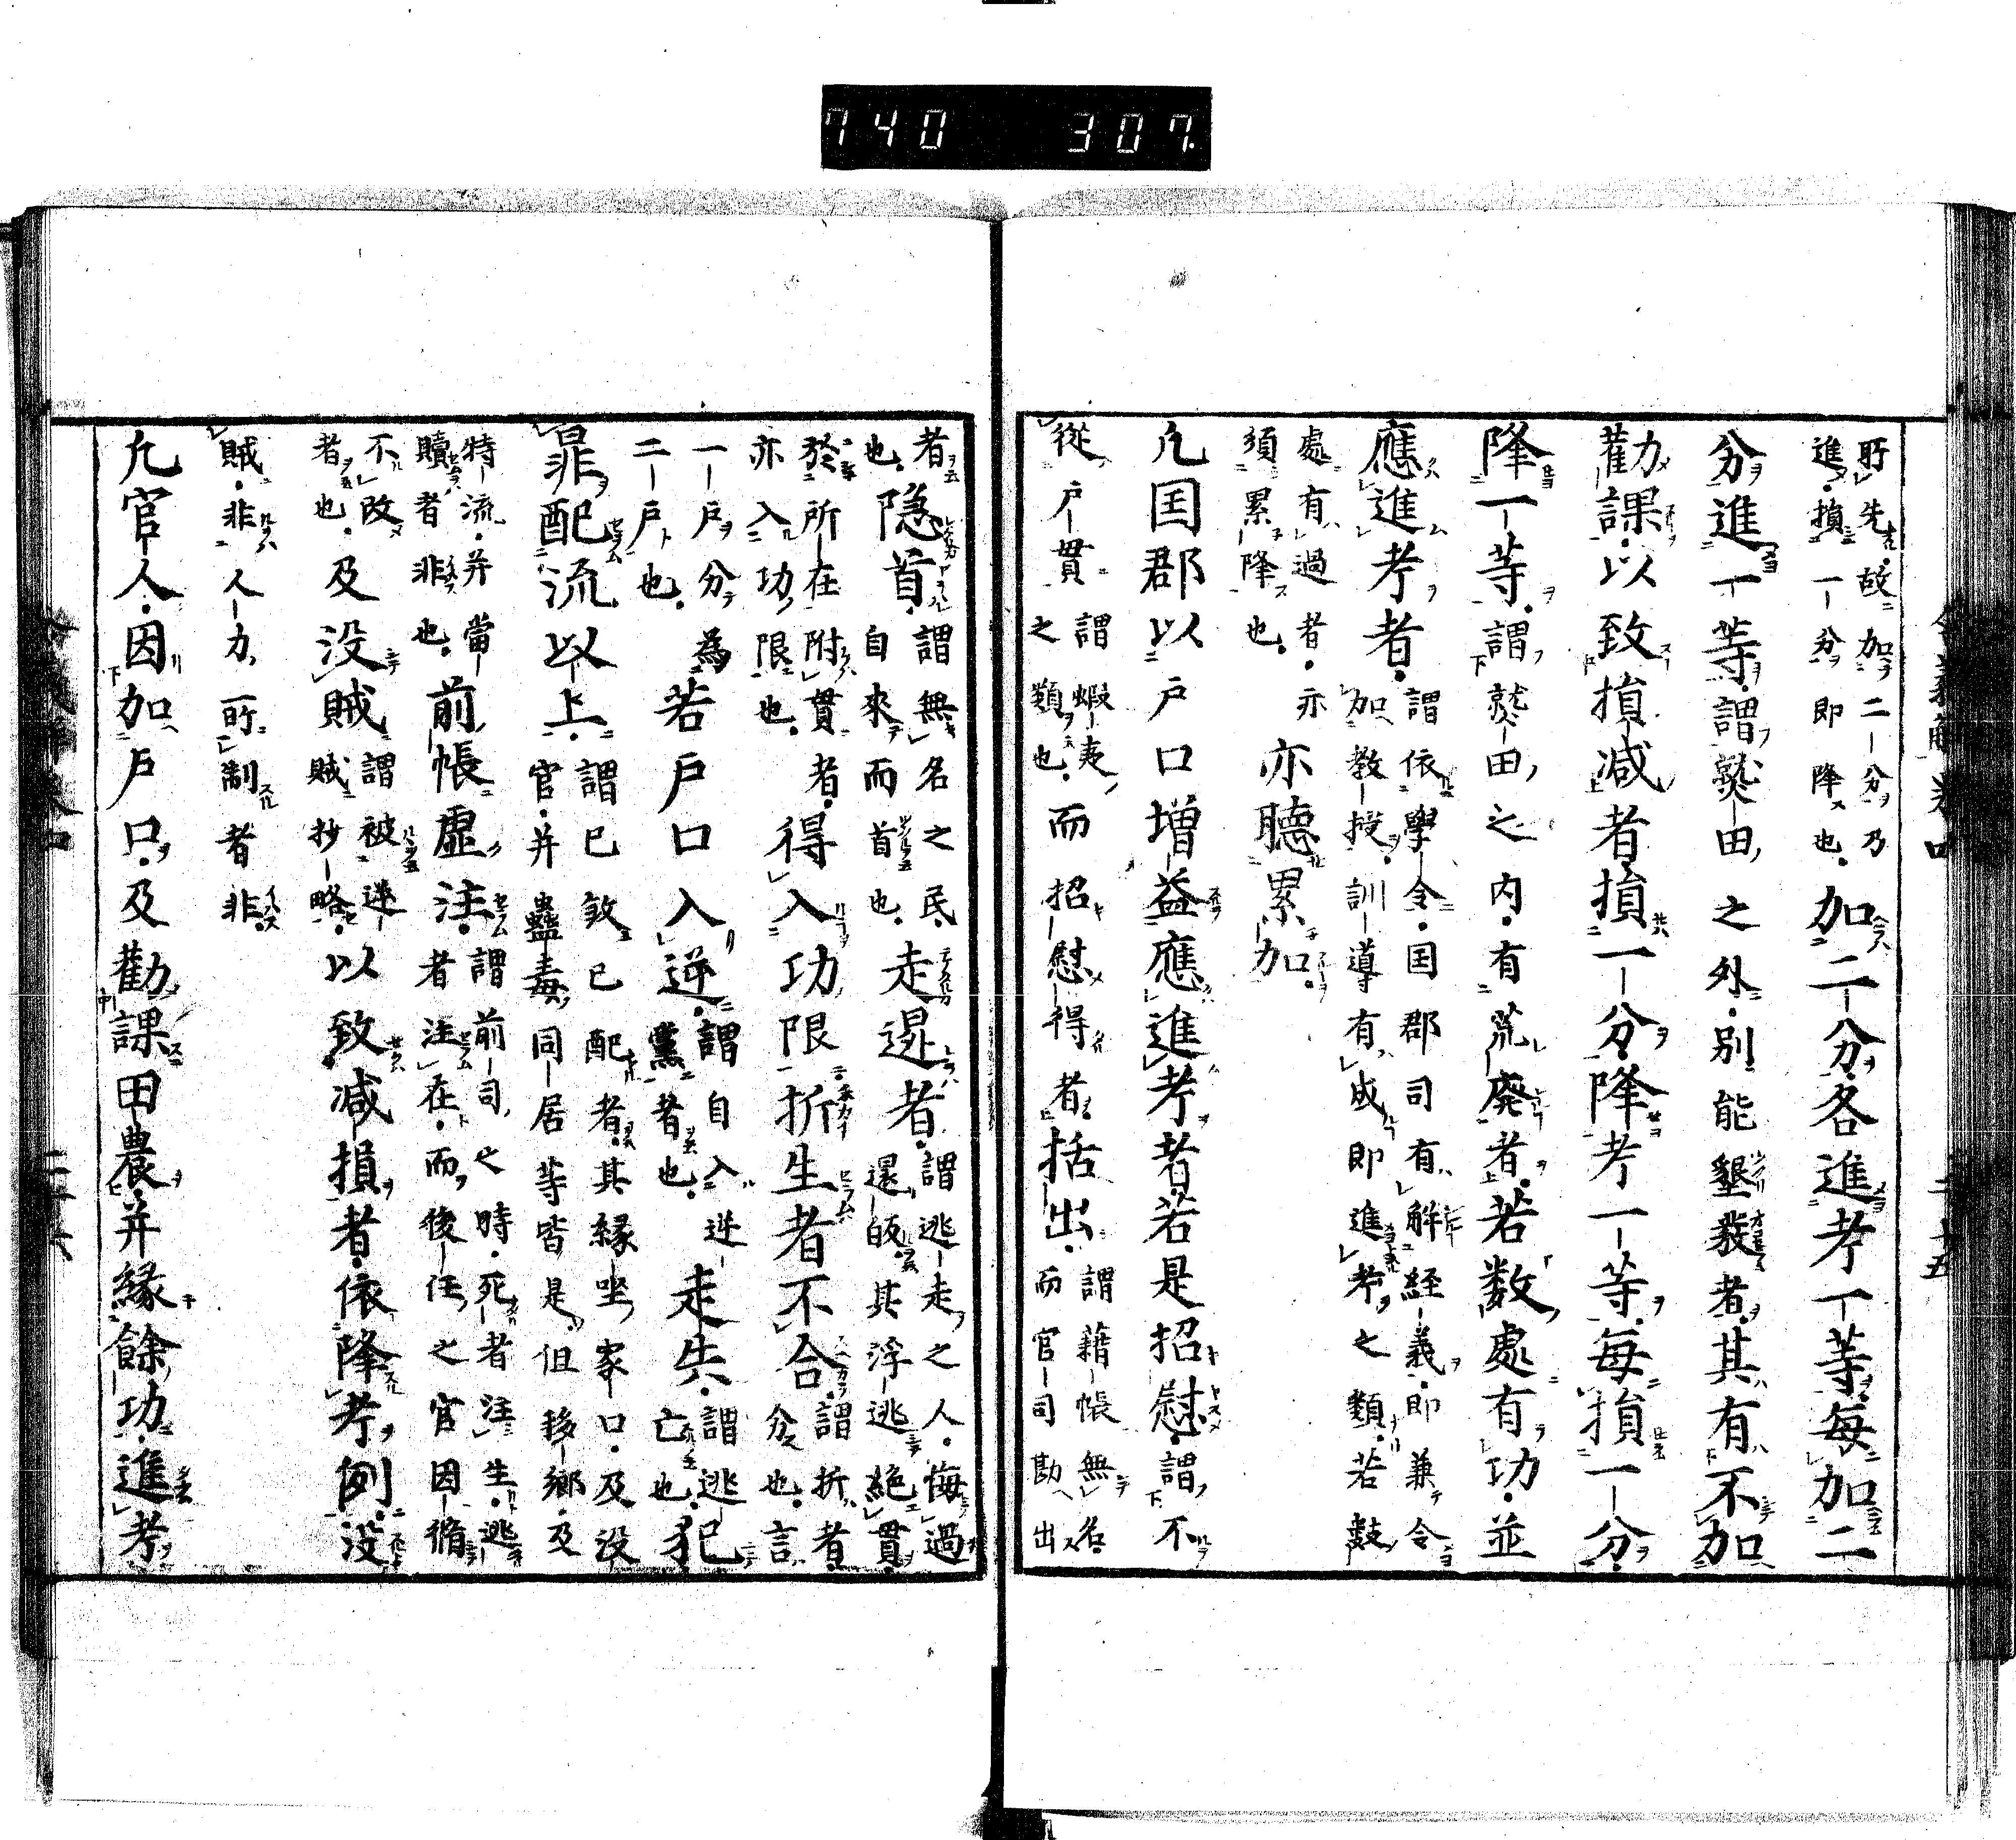 740 307
所先故加二分乃
進損一分即降也
加二分各進考一等每加二
分進一等謂熟田之外別能墾發者其有不加
勸課以致損减者損一分降考一等每損一分
降一等謂熟田之内有荒廢者若数處有功並
應進考者
謂依學令国郡司有解経義即兼令
加教授訓導有成即進考之類若数
處有過者亦
須累降也
亦聽累加
凡国郡以戸口増益應進考者若是招慰謂不
從戸貫
謂蝦夷
之類也
而招慰得者括出
謂藉帳無名
而官司勘出
者
也
隠首
謂無名之民
自來而首也
走還者
謂逃走之人悔過
還皈其浮逃絶貫
於所在附貫者
亦入功限也
得入功限折生者不合
謂折者
分也言
一戸分為
二戸也
若戸口入逆
謂自入逆
黨者也
走失
謂逃
亡也
犯
罪配流以上
謂已敘已配者其縁坐家口及没
官并蠱毒同居等皆是但移郷及
特流并當
贖者非也
前帳虚注
謂前司之時死者注生逃
者注在而後任之官因循
不改
者也
及没賊
謂被逆
賊抄略
以致减損者依降考例没
賊非人力所制者非
凡官人因加戸口及勸課田農并縁餘功進考